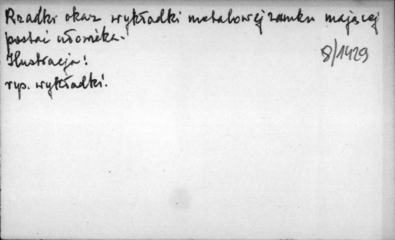 Rzadki okaz wykładki metalowej zamku mającej
postać człowieka.
Ilustracja:
8/1429
rys. wykładki.